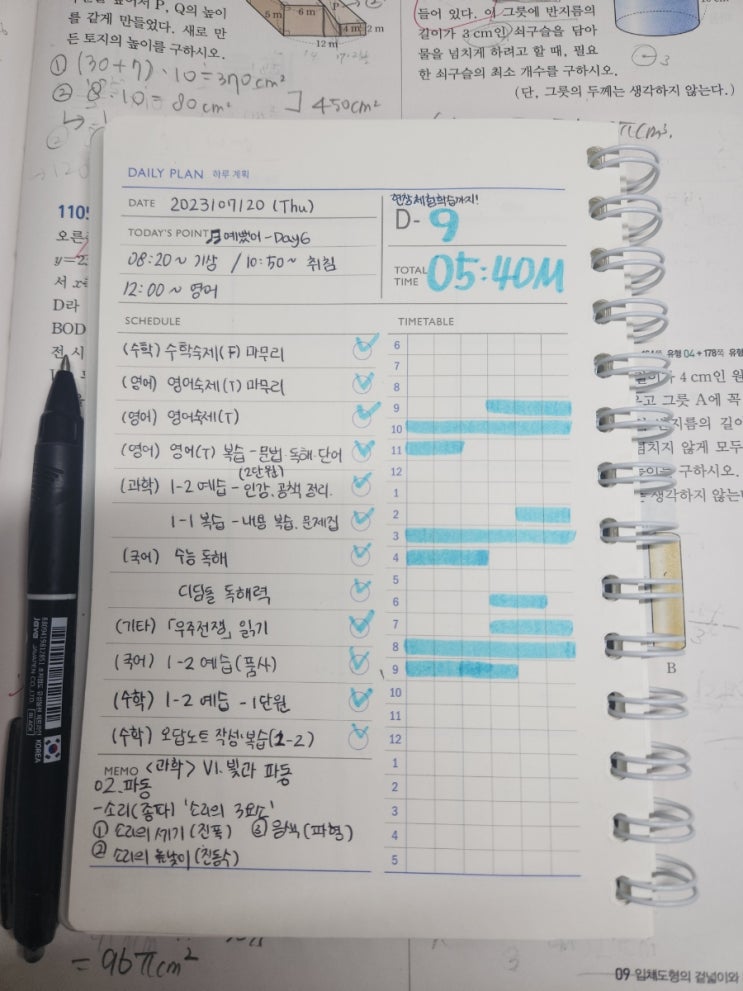 를 같게 만들었다. 새로 만
든 토지의 높이를 구하시오.
6 m
5 m
P
4 m
2 m
12 m
① (30+7)·10=370cm²
② 8·10=80cm²
450cm²
들어 있다. 이 그릇에 반지름의
길이가 3 cm인 쇠구슬을 담아
물을 넘치게 하려고 할 때, 필요
한 쇠구슬의 최소 개수를 구하시오.
(단, 그릇의 두께는 생각하지 않는다.)
3
DAILY PLAN 하루 계획
DATE 2023/07/20 (Thu)
TODAY'S POINT ♬ 예뻤어-Day6
08:20~ 기상 / 10:50~ 취침
12:00 ~ 영어
현장체험학습까지!
D-9
TOTAL TIME 05:40M
SCHEDULE
(수학) 수학숙제(F) 마무리
(영어) 영어숙제(T) 마무리
(영어) 영어숙제(T)
(영어) 영어(T) 복습 - 문법·독해·단어
(2단원)
(과학) 1-2 예습 - 인강, 공책 정리.
1-1 복습 - 내용 복습, 문제집
(국어) 수능 독해
디딤돌 독해력
(기타) 「우주전쟁」 읽기
(국어) 1-2 예습 (품사)
(수학) 1-2 예습 - 1단원
(수학) 오답노트 작성·복습(1-2)
TIMETABLE
6
7
8
9
10
11
12
1
2
3
4
5
6
7
8
9
10
11
12
1
2
3
4
5
MEMO <과학> Ⅵ.빛과 파동
02.파동
-소리(종파) '소리의 3요소'
① 소리의 세기 (진폭) ③ 음색 (파형)
② 소리의 높낮이 (진동수)
1105
오른
서
D라
BOD
전 시
유형 04
178쪽 유형
4 cm인 원
그릇 A에 꼭
길이
넘치지 않게 모두
구하시오.
생각하지 않는
B
JAVA
KOREA
BLACK
= 96πcm²
09 입체도형의 겉넓이와